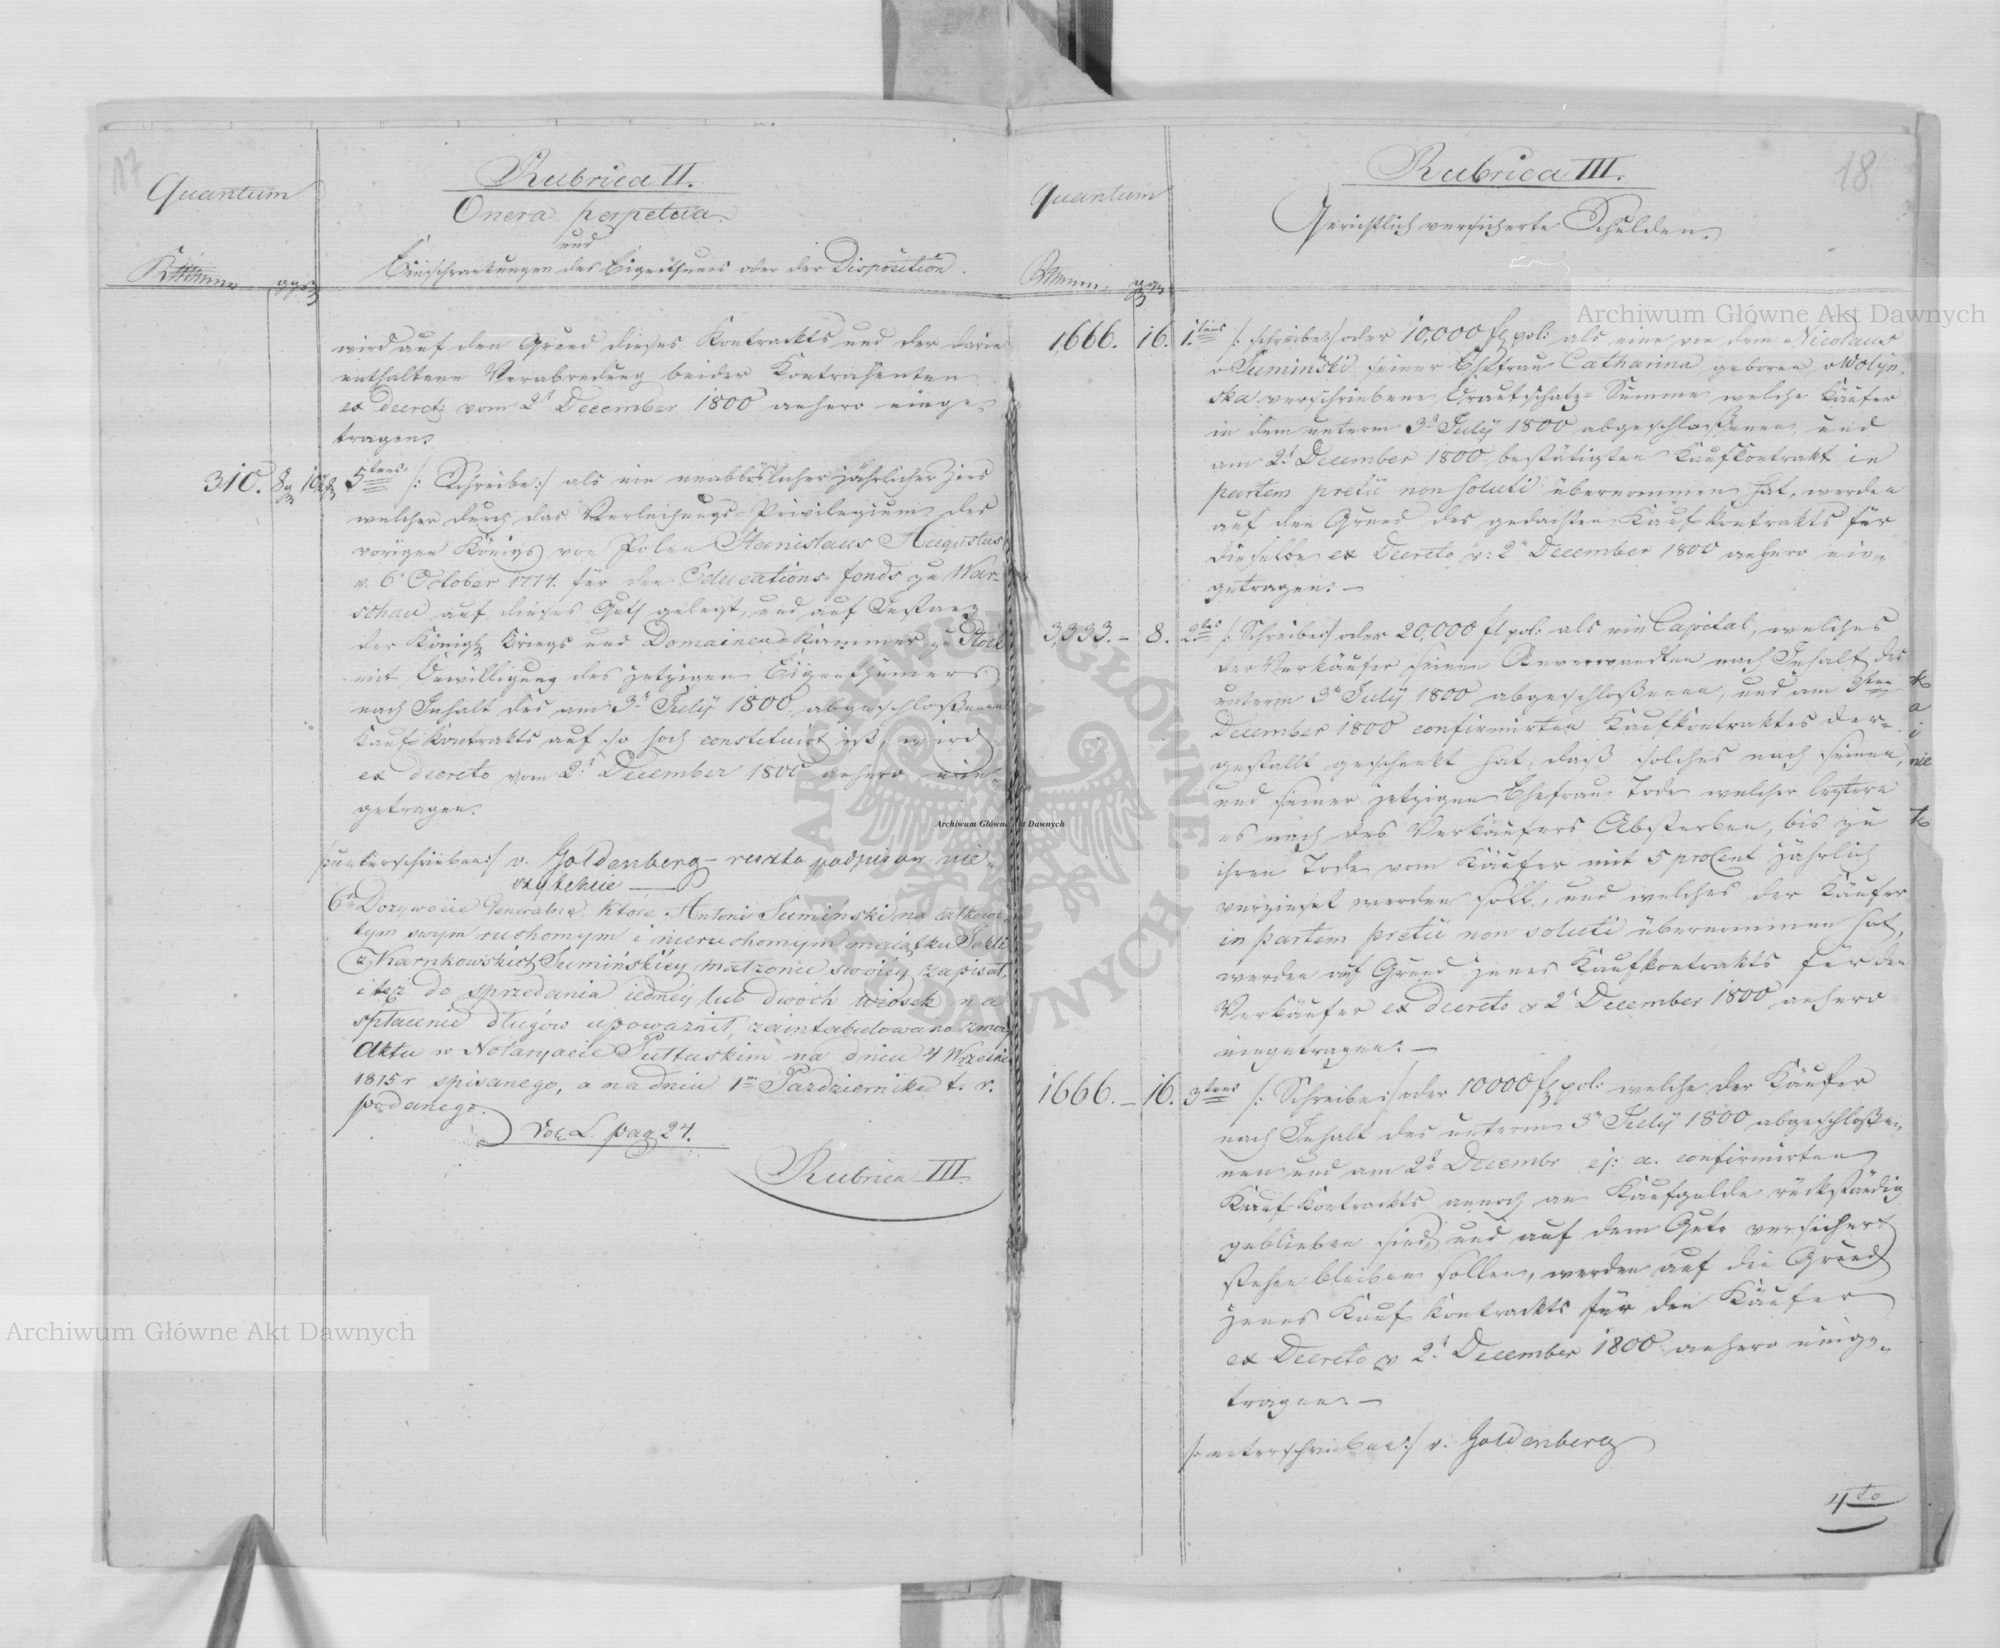 17
Quantum
Rubrica II.
Onera perpetua.
und
Einschraenkungen des Eigenthums oder der Disposition.
ggr
wird auf den Grund dieses Kontrackts und der darin
enthaltene Verabredung beider Kontrahenten
ex decret: vom 2t December 1800 anhero einge-
tragen.
310. 8 g 10
5tens /: Schreibe :/ als ein unablöslicher jährlicher Zins
welcher durch das Verleihungs-Privilegium des
vorigen Königs von Polen Stanislaus Augustus
v. 6t October 1774. für den Educations fonds zu War-
schau auf dieses Guth gelegt, und auf Instanz
der Königl Kriegs und Domainen-Kammer zu Plock
mit Bewilligung des jetzigen Eigenthümers
nach Inhalt des am 3t July 1800 abgeschloßenen
Kauf Kontrakts auf so hoch constituirt ist, wird
ex decreto vom 2t December 1800 anhero ein-
getragen.
/:unterschrieben:/ v. Goldenberg – reszta podpisow nie-
czytelnie —
6to Dozywocie Generalne, ktore Antoni Suminski na całkowi-
tym swym ruchomym i nieruchomym maiątku Tekli
z Karnkowskich Sumińskiey małzonce swoiey zapisał,
i tęz do sprzedania iedney lub dwóch wiosek na
spłacenie długów upowaznił, zaintabulowano z mocy
Aktu w Notaryacie Pułtuskim na dniu 4 Wrzesnia
1815 r spisanego, a na dniu 1m Pazdziernika t. r.
podanego.
Vol. L. pag 24.
Rubrica III
18.
Quantum
Rubrica III.
Gerichtlich versicherte Schulden.
1,666. 16. 1tens /: schreibe:/ oder 10,000 fl pol: als eine von dem Nicolaus
v Sumiński seiner Ehefrau Catharina geboren v Wolyn-
ska verschriebene Brautschatz-Summe welche Käufer
in dem unterm 3t July 1800 abgeschloßenen und
am 2t December 1800 bestätigten Kaufkontrakt in
partem pretii non soluti übernommen hat, werden
auf den Grund des gedachten Kauf Kontrakts für
dieselbe ex Decreto v: 2t December 1800 anhero ein-
getragen. —
3,333. – 8. 2tens /: Schreibe:/ oder 20,000 fl pol: als ein Capital, welches
der Verkäufer seinen Anverwandten nach Inhalt des
unterm 3t July 1800 abgeschloßenen, und am
December 1800 confirmirten Kaufkontracktes der-
gestallt geschenkt hat, daß solches nach seinem,
und seiner jetzigen Ehefrau Tode welcher letztere
es nach des Verkäufers Absterben, bis zu
ihren Tode vom Käufer mit 5 proCent jährlich
verzinset werden soll, und welches der Käufer
in partem pretii non soluti übernommen hat,
werden auf Grund jenes Kaufkontrakts für den
Verkäufer ex decreto v 2t December 1800 anhero
eingetragen. —
1666. – 16. 3tens /: Schreibe:/ oder 10000 fl pol: welche der Käufer
nach Inhalt des unterm 3t July 1800 abgeschloße-
nen und am 2t Decembr ej: a. confirmirten
Kauf Kontrackts annoch an Kaufgelde rückständig
geblieben sind, und auf dem Gute versichert
stehen bleiben sollen, werden auf den Grund
jenes Kauf Kontrackts für den Käufer
ex Decreto v 2t December 1800 anhero einge-
tragen. —
/: unterschrieben:/ v. Goldenberg
4to
Archiwum Główne Akt Dawnych
Archiwum Główne Akt Dawnych
Archiwum Główne Akt Dawnych